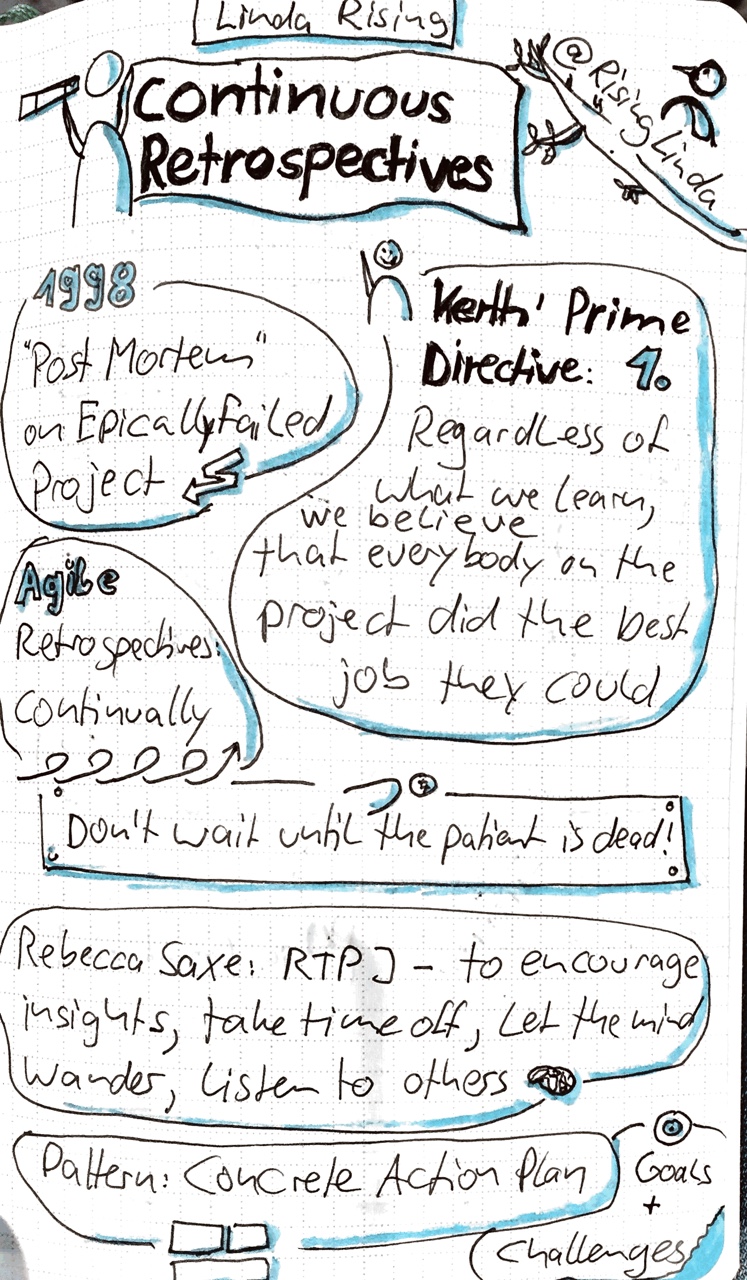 Linda Rising
Continuous
Retrospectives
@RisingLinda
1998
"Post Mortem"
on Epically Failed
Project
Kerth' Prime
Directive: 1.
Regardless of
what we learn,
we believe
that everybody on the
project did the best
job they could
Agile
Retrospectives:
Continually
Don't wait until the patient is dead!
Rebecca Saxe: RTPJ - to encourage
insights, take time off, let the mind
wander, listen to others
Pattern: Concrete Action Plan
Goals
+
Challenges